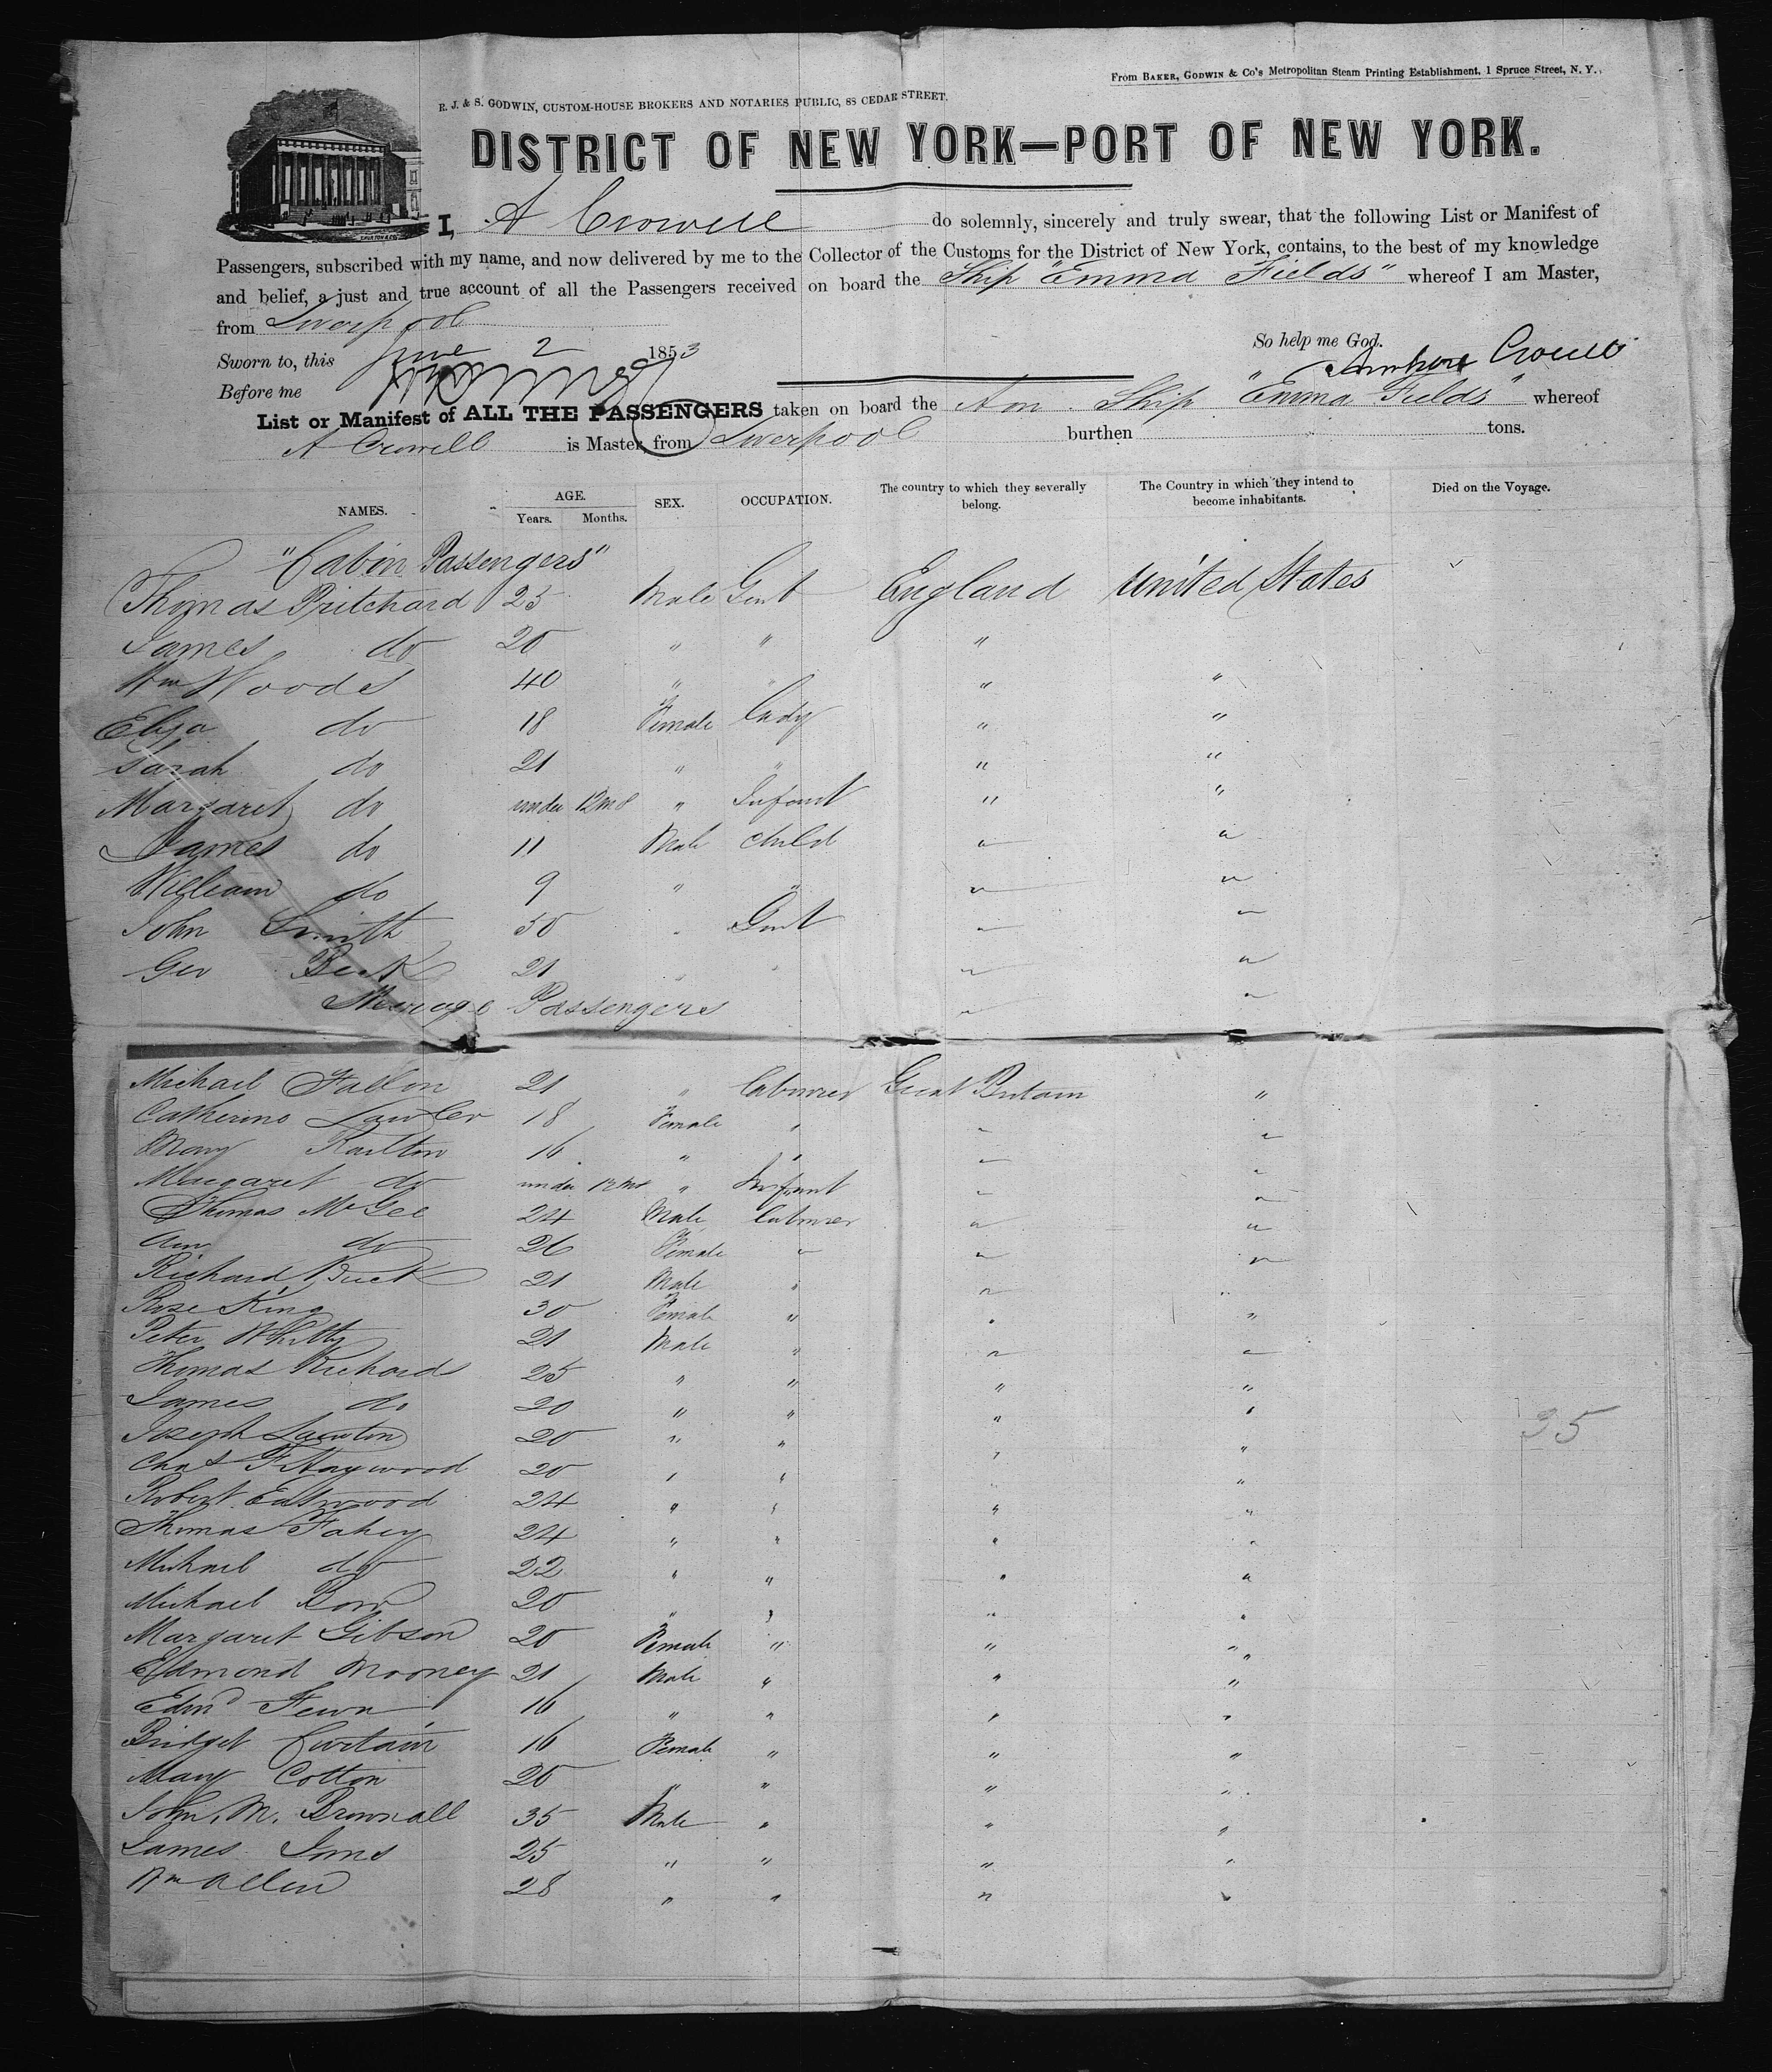 From BAKER, GODWIN & CO'S Metropolitan Steam Printing Establishment, 1 Spruce Street, N. Y.
R. J. & S. GODWIN, CUSTOM-HOUSE BROKERS AND NOTARIES PUBLIC, 88 CEDAR STREET.
DISTRICT OF NEW YORK—PORT OF NEW YORK.
I, A Crowell do solemnly, sincerely and truly swear, that the following List or Manifest of
Passengers, subscribed with my name, and now delivered by me to the Collector of the Customs for the District of New York, contains, to the best of my knowledge
and belief, a just and true account of all the Passengers received on board the Ship "Emma Fields" whereof I am Master,
from Liverpool
Sworn to, this June 2 1853 So help me God.
Before me Crowell
List or Manifest of ALL THE PASSENGERS taken on board the Am. Ship "Emma Fields" whereof
A Crowell is Master, from Liverpool burthen tons.
NAMES. AGE. Years. Months. SEX. OCCUPATION. The country to which they severally belong. The Country in which they intend to become inhabitants. Died on the Voyage.
"Cabin Passengers"
Thomas Pritchard 25 Male Gent England United States
James do 20 " " "
Wm Woods 40 " " " "
Eliza do 18 Female Lady " "
Sarah do 21 " " " "
Margaret do under 12 mos " Infant " "
James do 11 Male child " "
William do 9 " " " "
John Smith 50 " Gent " "
Geo Beck 21 " " " "
Steerage Passengers " "
Michael Fallon 21 " Labourer Great Britain "
Catherine Lawler 18 Female " " "
Mary Railton 16 " " " "
Margaret do under 12 mos " Infant " "
Thomas McGee 24 Male Labourer " "
Ann do 26 Female " " "
Richard Buck 21 Male " " "
Rose King 30 Female " " "
Peter Whitty 21 Male " " "
Thomas Richards 25 " " " "
James do 20 " " " "
Joseph Lawton 20 " " " "
Chas F Haywood 20 " " " "
Robert Eastwood 24 " " " "
Thomas Fahey 24 " " " "
Michael do 22 " " " "
Michael 20 " " " "
Margaret Gibson 20 Female " " "
Edmond Mooney 21 Male " " "
Edmd 16 " " " "
Bridget Curtain 16 Female " " "
Mary Cotton 20 " " " "
John M. Brownall 35 Male " " "
James 25 " " " "
Wm Allen 28 " " " "
35